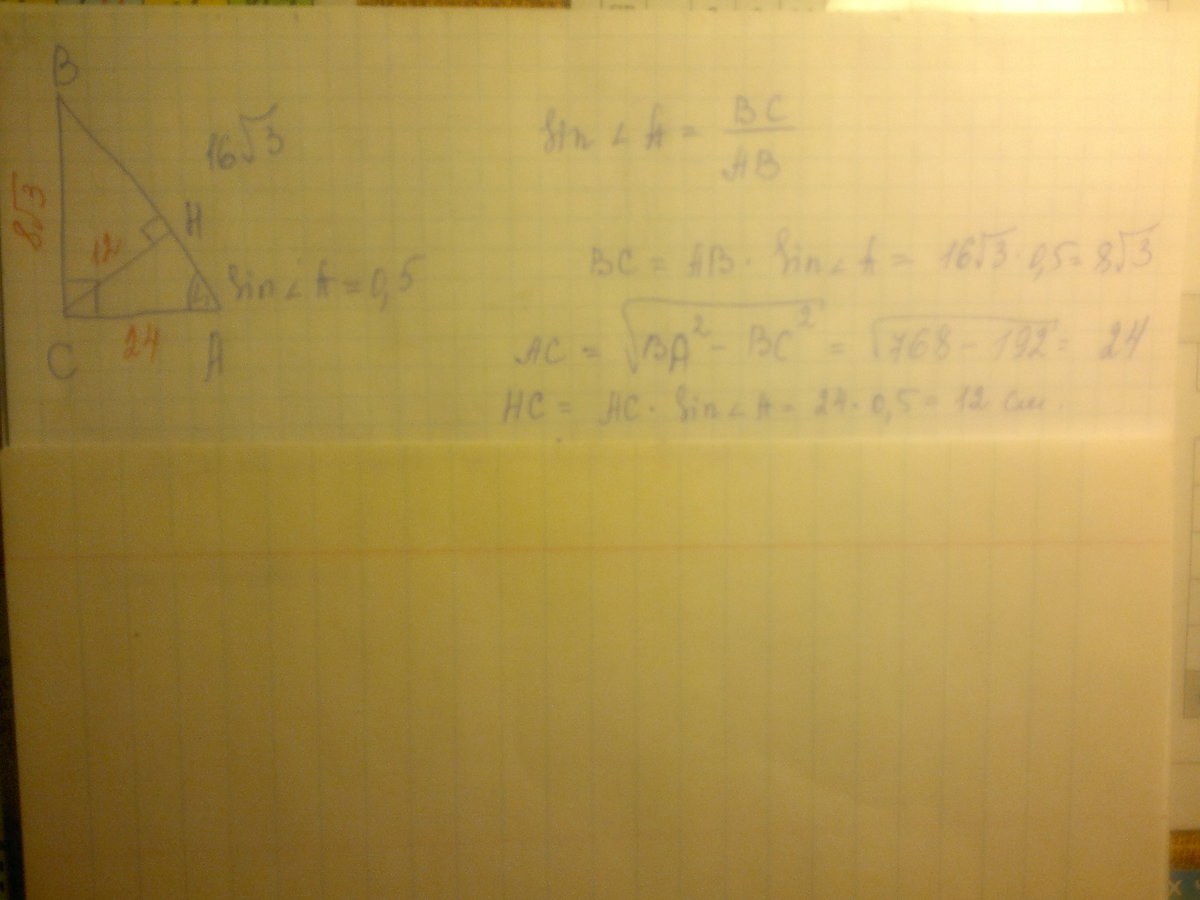 B
16√3
8√3
12
H
sin ∠ A = 0,5
24
C
A
Sin ∠ A = BC / AB
BC = AB · Sin ∠ A = 16√3 · 0,5 = 8√3
AC = √BA² - BC² = √768 - 192 = 24
HC = AC · Sin ∠ A = 24 · 0,5 = 12 см.